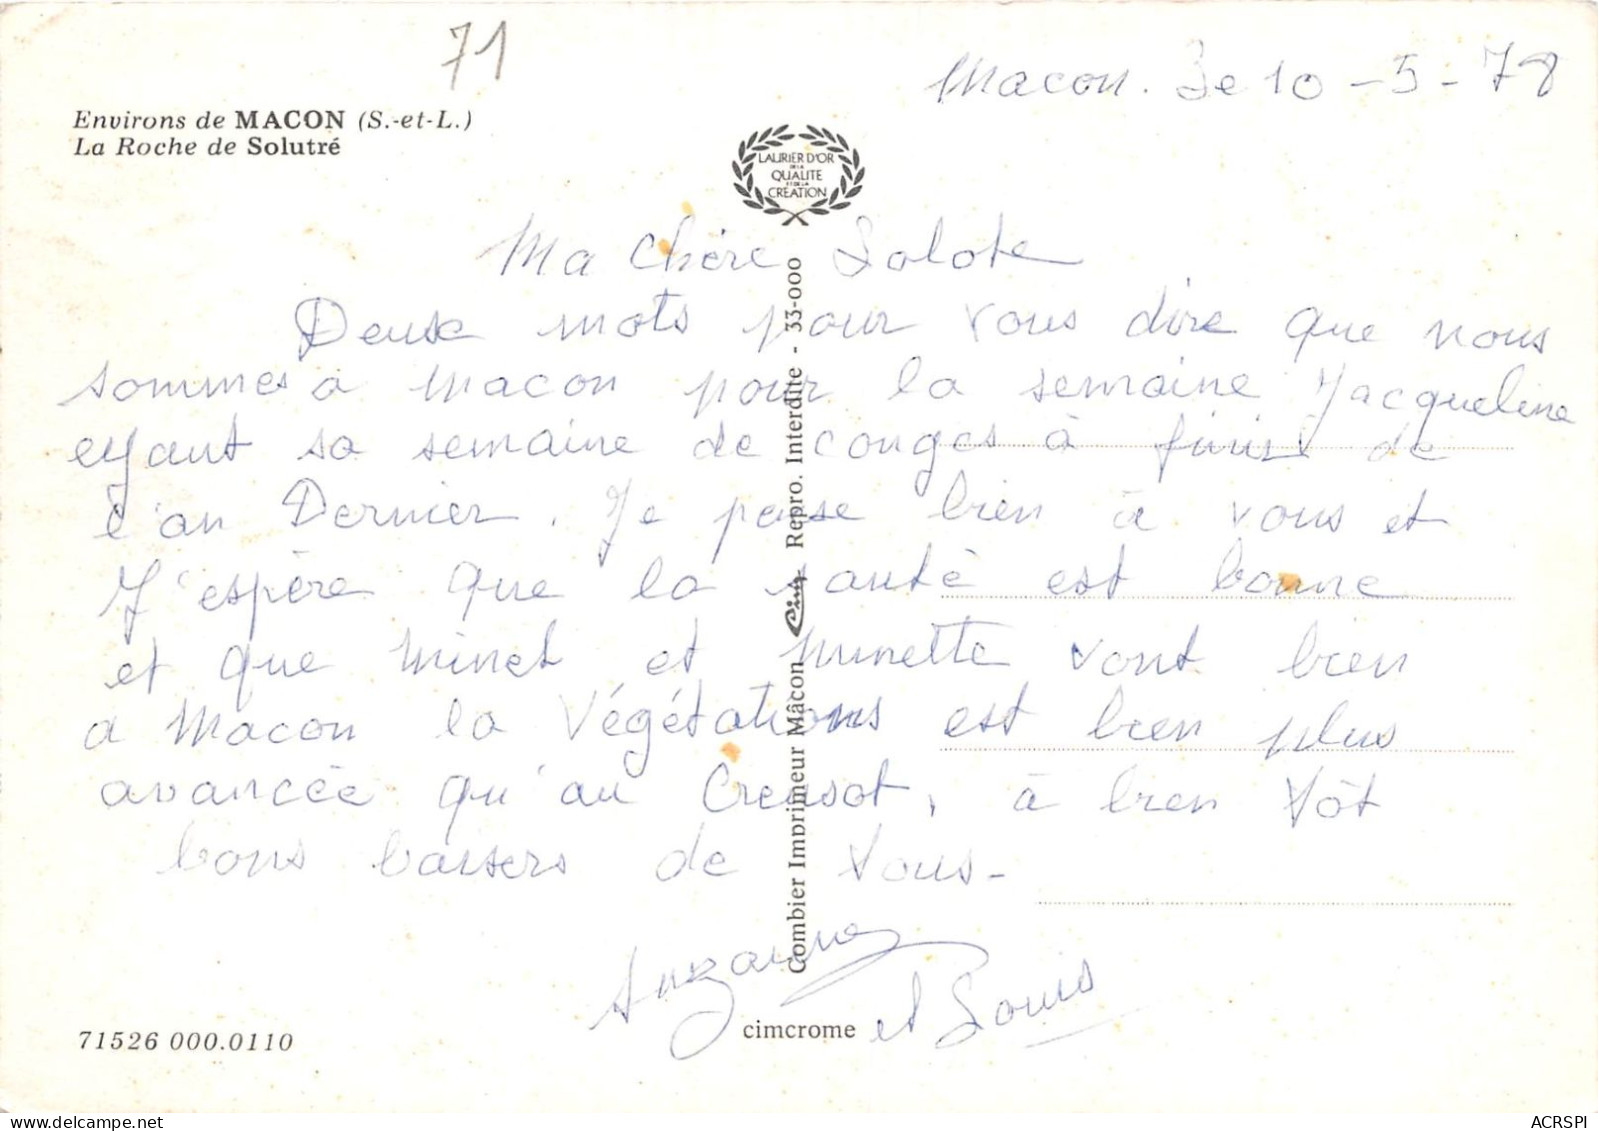 71
Macon. Le 10-5-78
Environs de MACON (S.-et-L.)
La Roche de Solutré
LAURIER D'OR
DE LA
QUALITE
ET DE LA
CREATION
Ma Chère Lolote
Deux mots pour vous dire que nous
sommes a Macon pour la semaine Jacqueline
eyant sa semaine de conges à finir de
l'an Dernier. Je pense bien à vous et
J'espère que la santé est bonne
et que Minet et Minette vont bien
a Macon la Végétations est bien plus
avancée qu'au Creusot, à bien tôt
bons baisers de tous-
Suzanne
et Louis
Combier Imprimeur Mâcon Cim Repro. Interdite - 33-000
71526 000.0110
cimcrome
ACRSPI